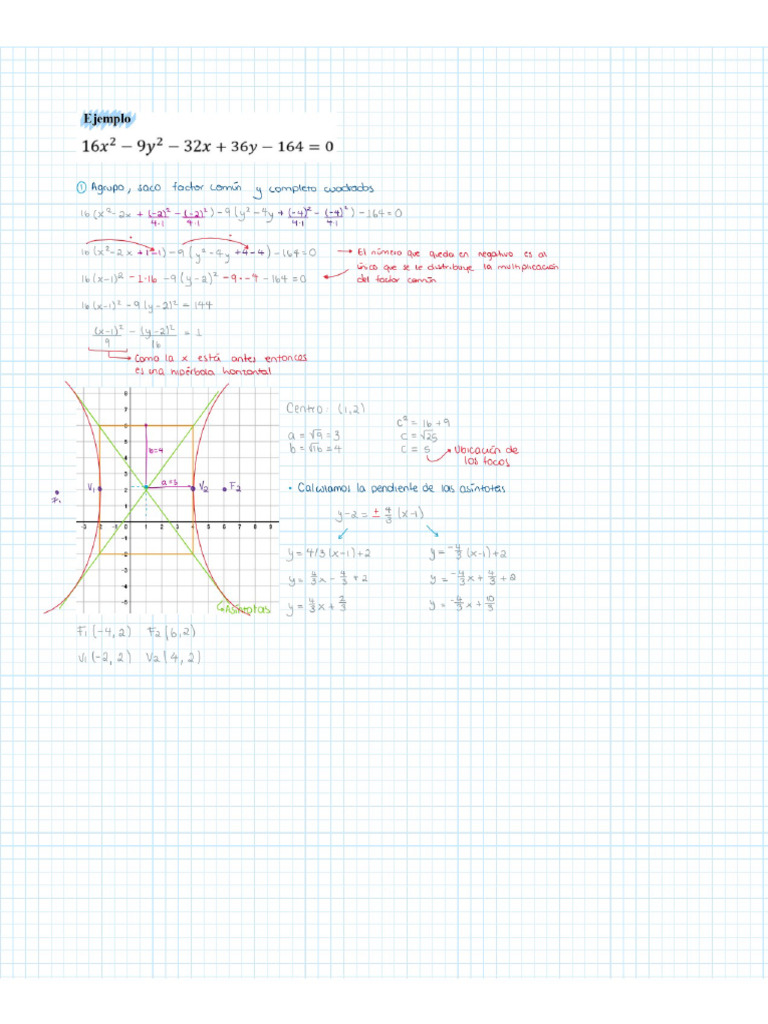 Ejemplo
16x² − 9y² − 32x + 36y − 164 = 0
① Agrupo, saco factor común y completo cuadrados
16(x² - 2x + (-2)²/4·1 - (-2)²/4·1) - 9(y² - 4y + (-4)²/4·1 - (-4)²/4·1) - 164 = 0
16(x² - 2x + 1 - 1) - 9(y² - 4y + 4 - 4) - 164 = 0 → El número que queda en negativo es al
único que se le distribuye la multiplicación
del factor común
16(x-1)² - 1·16 - 9(y-2)² - 9·-4 - 164 = 0
16(x-1)² - 9(y-2)² = 144
(x-1)²/9 - (y-2)²/16 = 1
Como la x está antes entonces
es una hipérbola horizontal
Centro: (1,2)
a = √9 = 3
b = √16 = 4
c² = 16 + 9
c = √25
c = 5 → Ubicación de
los focos
• Calculamos la pendiente de las asíntotas
y - 2 = ± 4/3 (x-1)
y = 4/3 (x-1) + 2
y = 4/3 x - 4/3 + 2
y = 4/3 x + 2/3
y = -4/3 (x-1) + 2
y = -4/3 x + 4/3 + 2
y = -4/3 x + 10/3
b=4
a=3
V1
V2
F2
F1
8
7
6
5
4
3
2
1
-3 -2 -1 1 2 3 4 5 6 7 8 9
-1
-2
-3
-4
-5
Asíntotas
F1(-4,2) F2(6,2)
V1(-2,2) V2(4,2)